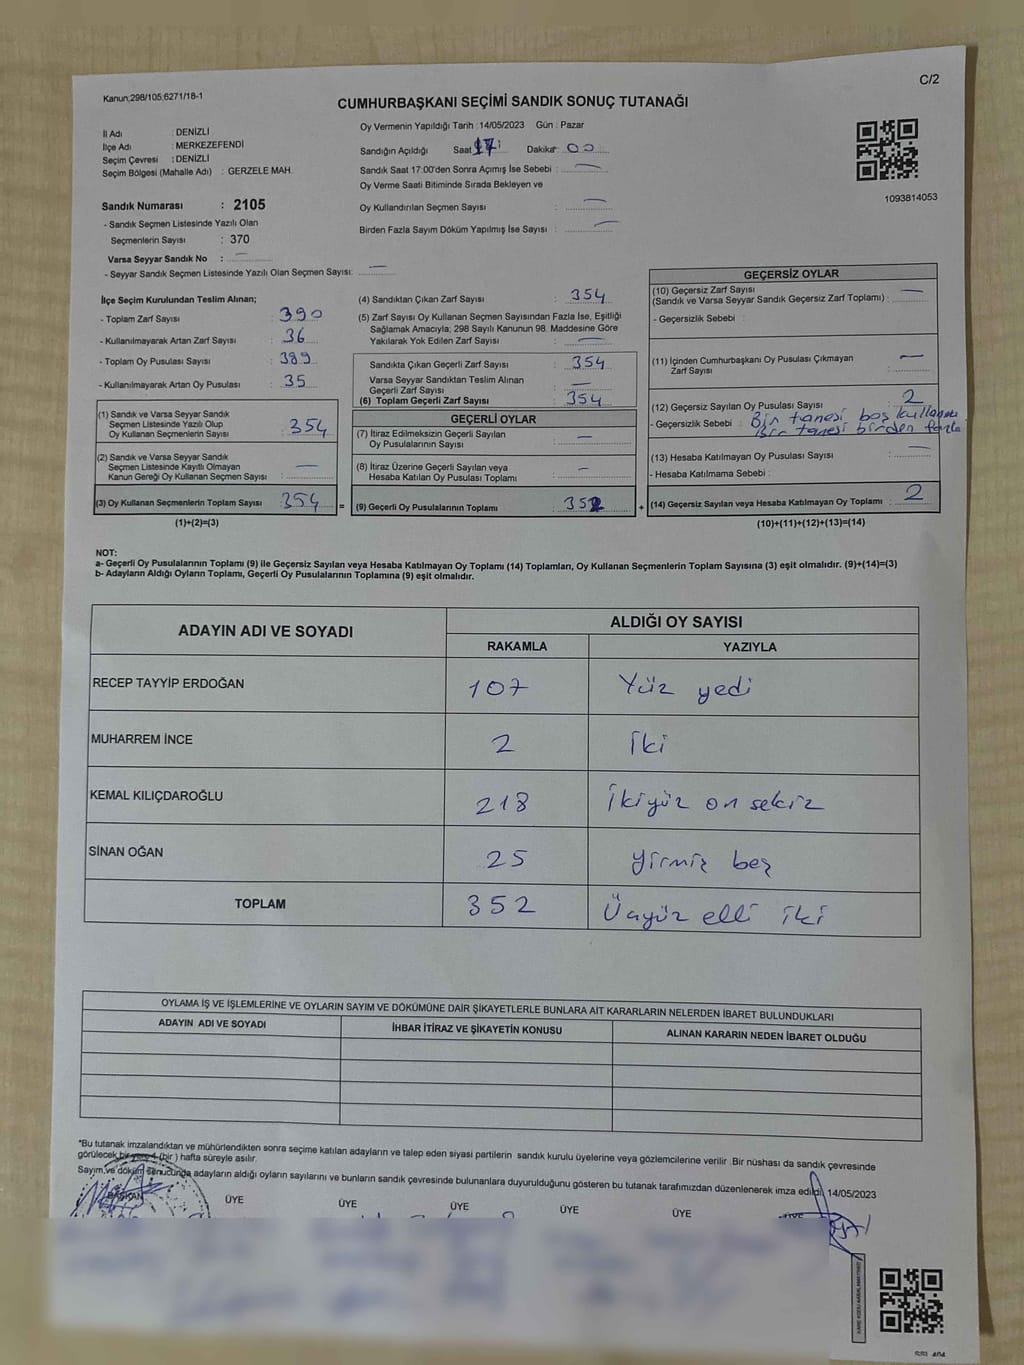 C/2
Kanun;298/105;6271/18-1
CUMHURBAŞKANI SEÇİMİ SANDIK SONUÇ TUTANAĞI
İl Adı : DENİZLİ
İlçe Adı : MERKEZEFENDİ
Seçim Çevresi : DENİZLİ
Seçim Bölgesi (Mahalle Adı) : GERZELE MAH.
Sandık Numarası : 2105
- Sandık Seçmen Listesinde Yazılı Olan
Seçmenlerin Sayısı : 370
Varsa Seyyar Sandık No : —
- Seyyar Sandık Seçmen Listesinde Yazılı Olan Seçmen Sayısı: —
Oy Vermenin Yapıldığı Tarih :14/05/2023 Gün : Pazar
Sandığın Açıldığı Saat 17 Dakika: 00
Sandık Saat 17:00'den Sonra Açımış İse Sebebi : —
Oy Verme Saati Bitiminde Sırada Bekleyen ve
Oy Kullandırılan Seçmen Sayısı : —
Birden Fazla Sayım Döküm Yapılmış İse Sayısı : —
1093814053
İlçe Seçim Kurulundan Teslim Alınan;
- Toplam Zarf Sayısı : 390
- Kullanılmayarak Artan Zarf Sayısı : 36
- Toplam Oy Pusulası Sayısı : 389
- Kullanılmayarak Artan Oy Pusulası : 35
(1) Sandık ve Varsa Seyyar Sandık
Seçmen Listesinde Yazılı Olup
Oy Kullanan Seçmenlerin Sayısı : 354
(2) Sandık ve Varsa Seyyar Sandık
Seçmen Listesinde Kayıtlı Olmayan
Kanun Gereği Oy Kullanan Seçmen Sayısı : —
(3) Oy Kullanan Seçmenlerin Toplam Sayısı : 354 =
(1)+(2)=(3)
(4) Sandıktan Çıkan Zarf Sayısı : 354
(5) Zarf Sayısı Oy Kullanan Seçmen Sayısından Fazla İse, Eşitliği
Sağlamak Amacıyla; 298 Sayılı Kanunun 98. Maddesine Göre
Yakılarak Yok Edilen Zarf Sayısı : —
Sandıkta Çıkan Geçerli Zarf Sayısı : 354
Varsa Seyyar Sandıktan Teslim Alınan
Geçerli Zarf Sayısı : —
(6) Toplam Geçerli Zarf Sayısı : 354
GEÇERLİ OYLAR
(7) İtiraz Edilmeksizin Geçerli Sayılan
Oy Pusulası Sayısı : —
(8) İtiraz Üzerine Geçerli Sayılan veya
Hesaba Katılan Oy Pusulası Toplamı : —
(9) Geçerli Oy Pusulalarının Toplamı : 352 +
GEÇERSİZ OYLAR
(10) Geçersiz Zarf Sayısı
(Sandık ve Varsa Seyyar Sandık Geçersiz Zarf Toplamı) : —
- Geçersizlik Sebebi :
(11) İçinden Cumhurbaşkanı Oy Pusulası Çıkmayan
Zarf Sayısı : —
(12) Geçersiz Sayılan Oy Pusulası Sayısı : 2
- Geçersizlik Sebebi : Bir tanesi boş
Bir tanesi birden fazla
(13) Hesaba Katılmayan Oy Pusulası Sayısı : —
- Hesaba Katılmama Sebebi :
(14) Geçersiz Sayılan veya Hesaba Katılmayan Oy Toplamı : 2
(10)+(11)+(12)+(13)=(14)
NOT:
a- Geçerli Oy Pusulalarının Toplamı (9) ile Geçersiz Sayılan veya Hesaba Katılmayan Oy Toplamı (14) Toplamları, Oy Kullanan Seçmenlerin Toplam Sayısına (3) eşit olmalıdır. (9)+(14)=(3)
b- Adayların Aldığı Oyların Toplamı, Geçerli Oy Pusulalarının Toplamına (9) eşit olmalıdır.
ADAYIN ADI VE SOYADI ALDIĞI OY SAYISI
RAKAMLA YAZIYLA
RECEP TAYYİP ERDOĞAN 107 Yüz yedi
MUHARREM İNCE 2 İki
KEMAL KILIÇDAROĞLU 218 İkiyüz on sekiz
SİNAN OĞAN 25 yirmi beş
TOPLAM 352 Üçyüz elli iki
OYLAMA İŞ VE İŞLEMLERİNE VE OYLARIN SAYIM VE DÖKÜMÜNE DAİR ŞİKAYETLERLE BUNLARA AİT KARARLARIN NELERDEN İBARET BULUNDUKLARI
ADAYIN ADI VE SOYADI İHBAR İTİRAZ VE ŞİKAYETİN KONUSU ALINAN KARARIN NEDEN İBARET OLDUĞU
*Bu tutanak imzalandıktan ve mühürlendikten sonra seçime katılan adayların ve talep eden siyasi partilerin sandık kurulu üyelerine veya gözlemcilerine verilir .Bir nüshası da sandık çevresinde
görülecek bir yere 1 (bir ) hafta süreyle asılır.
Sayım ve döküm sonucunda adayların aldığı oyların sayılarını ve bunların sandık çevresinde bulunanlara duyurulduğunu gösteren bu tutanak tarafımızdan düzenlenerek imza edildi. 14/05/2023
BAŞKAN ÜYE ÜYE ÜYE ÜYE ÜYE ÜYE